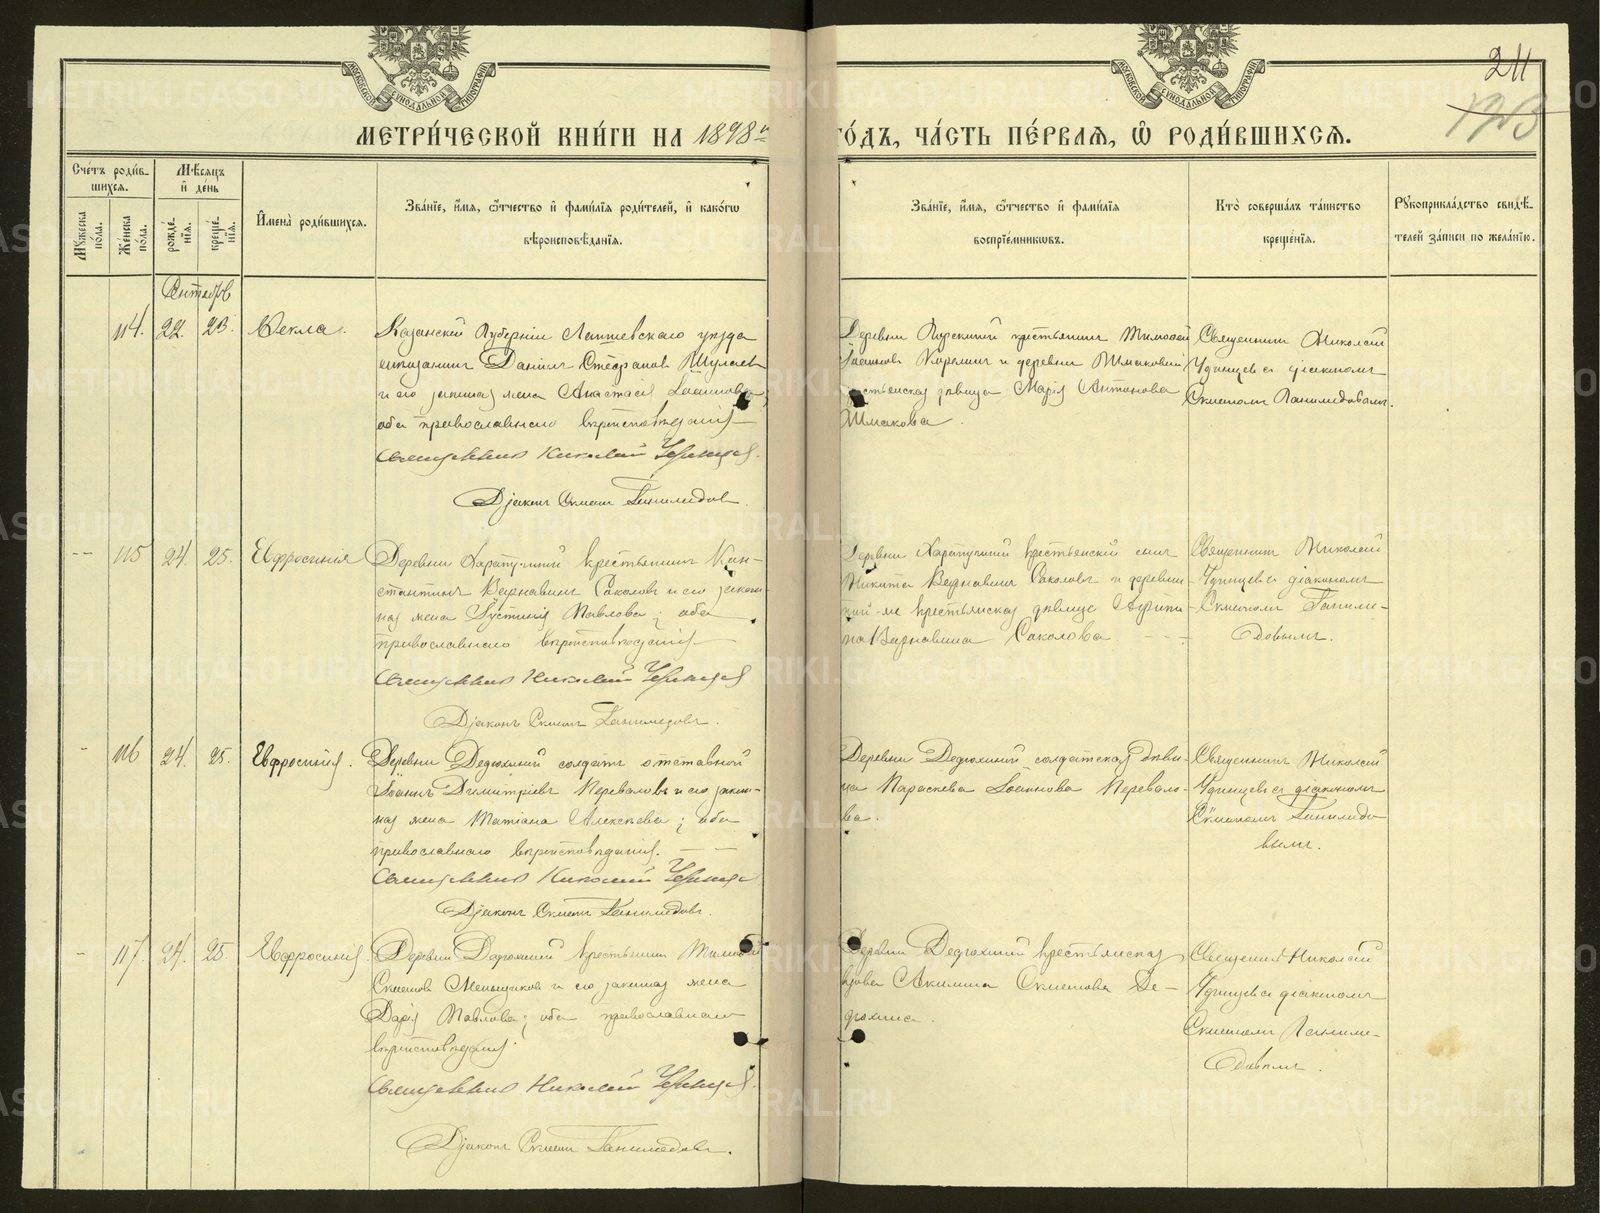 211
МЕТРИ́ЧЕСКОЙ КНИ́ГИ НА 1898й ГО́ДЪ, ЧА́СТЬ ПЕ́РВАѦ, Ѡ РОДИ́ВШИХСѦ.
Сче́тъ роди́вшихсѧ.
Му́жеска по́ла.
Же́нска по́ла.
Мѣ́сѧцъ и҆ де́нь
рожде́нїѧ.
креще́нїѧ.
И҆мена̀ роди́вшихсѧ.
Зва́нїе, и҆́мѧ, ѻ҆́тчество и҆ фами́лїѧ роди́телей, и҆ како́гѡ
вѣроисповѣ́данїѧ.
Зва́нїе, и҆́мѧ, ѻ҆́тчество и҆ фами́лїѧ
воспрїе́мникѡвъ.
Кто̀ соверша́лъ та́инство
креще́нїѧ.
Рꙋкоприкла́дство свидѣ́-
телей за́писи по жела́нїю.
Сентябрь
114. 22. 23. Ѳекла.
Казанской Губерніи Лаишевскаго уѣзда
мѣщанинъ Данiилъ Стефановъ
и его законная жена Анастасія Іоаннова
оба православнаго вѣроисповѣданія
Священникъ Николай Удинцевъ.
Діаконъ Симеонъ Ганимедовъ.
Деревни крестьянинъ Тимофей
Іоанновъ и деревни Шмаковой
крестьянская дѣвица Марія Антонова
Шмакова.
Священникъ Николай
Удинцевъ съ діакономъ
Симеономъ Ганимедовымъ.
-- 115 24. 25. Евфросинія
Деревни крестьянинъ Кон-
стантинъ Варнавинъ Соколовъ и его закон-
ная жена Іустинія Павлова; оба
православнаго вѣроисповѣданія
Священникъ Николай Удинцевъ
Діаконъ Симеонъ Ганимедовъ.
Деревни крестьянскій сынъ
Никита Варнавинъ Соколовъ и деревни
той-же крестьянская дѣвица Агрипи-
на Варнавина Соколова.
Священникъ Николай
Удинцевъ съ діакономъ
Симеономъ Ганиме-
довымъ.
- 116 24. 25. Евфросинія.
Деревни Дедюхиной солдатъ отставной
Іоаннъ Димитріевъ Переваловъ и его закон-
ная жена Татіана Алексѣева; оба
православнаго вѣроисповѣданія.
Священникъ Николай Удинцевъ
Діаконъ Симеонъ Ганимедовъ.
Деревни Дедюхиной солдатская дѣви-
ца Параскева Іоаннова Перевало-
ва.
Священникъ Николай
Удинцевъ съ діакономъ
Симеономъ Ганимедо-
вымъ.
- 117. 24. 25. Евфросинія.
Деревни Дедюхиной крестьянинъ Тимофей
Симеоновъ Меньщиковъ и его законная жена
Дарія Павлова; оба православнаго
вѣроисповѣданія.
Священникъ Николай Удинцевъ.
Діаконъ Симеонъ Ганимедовъ.
Деревни Дедюхиной крестьянская
вдова Акилина Симеонова Де-
дюхина.
Священникъ Николай
Удинцевъ съ діакономъ
Симеономъ Ганиме-
довымъ.
METRIKI.GASO-URAL.RU